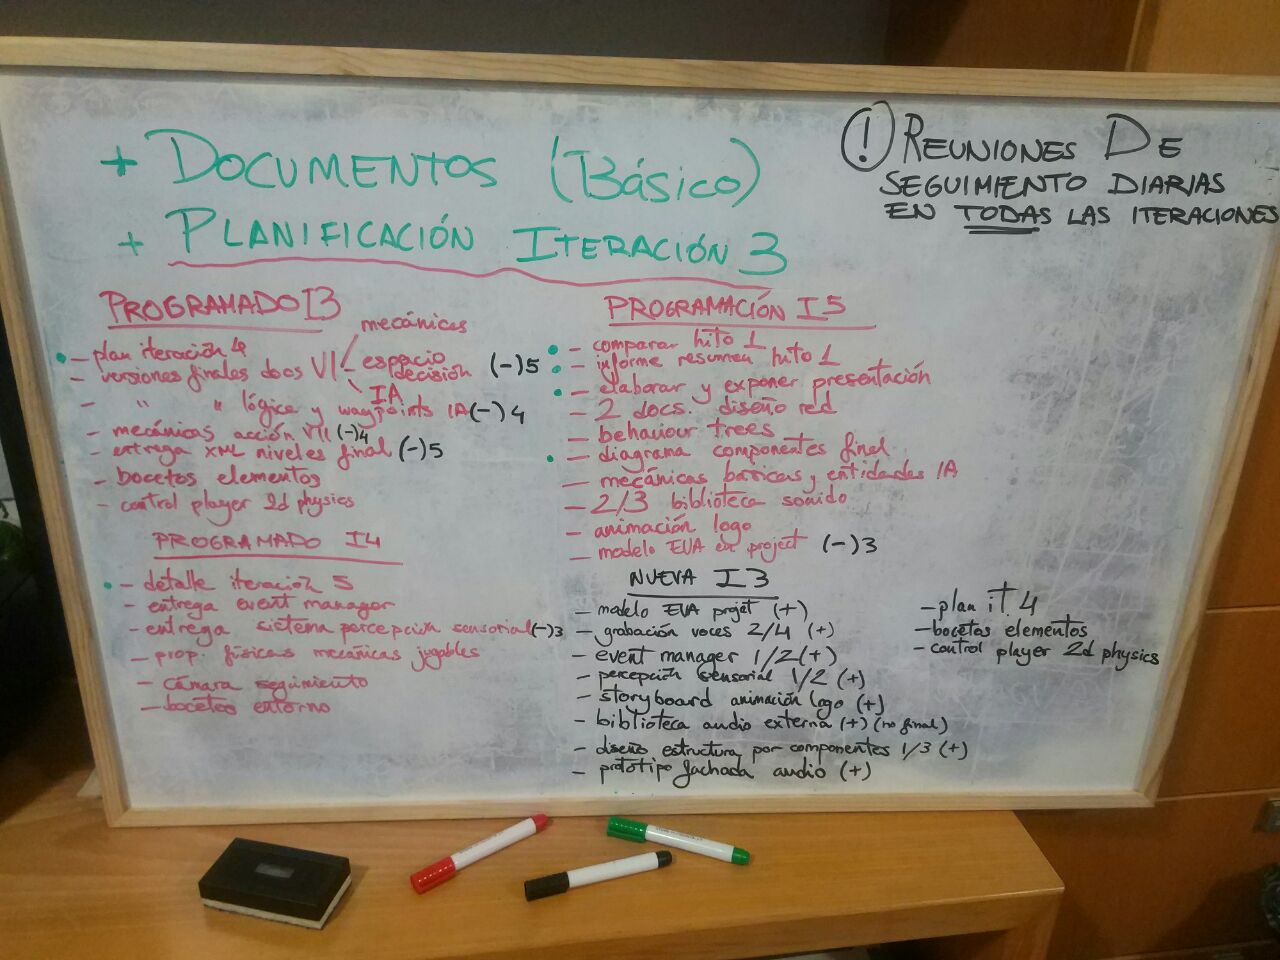 + DOCUMENTOS (Básico)
+ PLANIFICACIÓN ITERACIÓN 3
! REUNIONES DE
SEGUIMIENTO DIARIAS
EN TODAS LAS ITERACIONES
PROGRAMADO I3
- plan iteración 4
mecánicas
- versiones finales docs VI - espacio decisión (-)5
IA
- " " lógica y waypoints IA (-)4
- mecánicas acción VII (-)4
- entrega XML niveles final (-)5
- bocetos elementos
- control player 2d physics
PROGRAMADO I4
- detalle iteración 5
- entrega event manager
- entrega sistema percepción sensorial (-)3
- prop. físicas mecánicas jugables
- cámara seguimiento
- bocetos entorno
PROGRAMACIÓN I5
- comparar hito 1
- informe resumen hito 1
- elaborar y exponer presentación
- 2 docs. diseño red
- behaviour trees
- diagrama componentes final
- mecánicas básicas y entidades IA
- 2/3 biblioteca sonido
- animación logo
- modelo EVA en project (-)3
NUEVA I3
- modelo EVA projet (+)
- grabación voces 2/4 (+)
- event manager 1/2 (+)
- percepción sensorial 1/2 (+)
- storyboard animación logo (+)
- biblioteca audio externa (+) (no final)
- diseño estructura por componentes 1/3 (+)
- prototipo fachada audio (+)
- plan it. 4
- bocetos elementos
- control player 2d physics